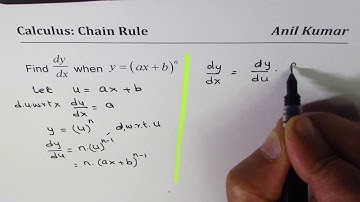 Calculus: Chain Rule
Anil Kumar
Find dy/dx when y = (ax + b)^n
Let u = ax + b
d.w.r.t.x du/dx = a
y = (u)^n , d.w.r.t. u
dy/du = n·(u)^(n-1)
= n·(ax+b)^(n-1)
dy/dx = dy/du ·